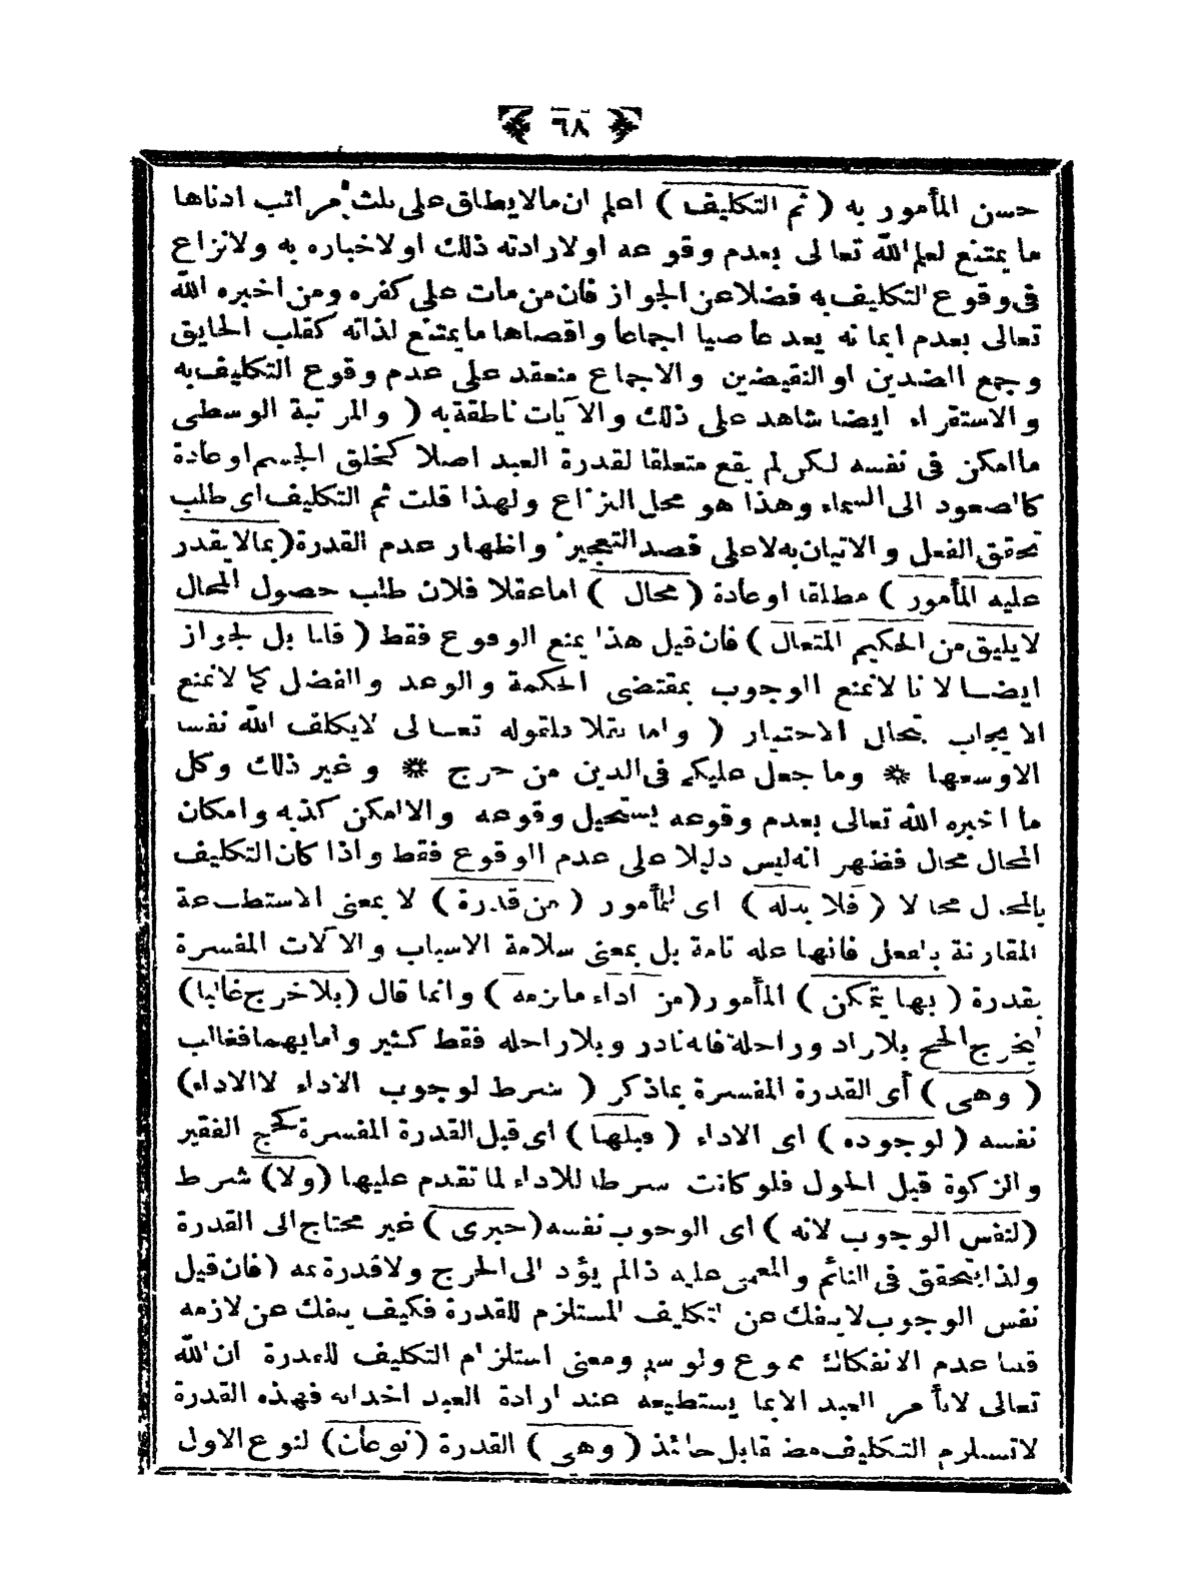 ﴿ ٦٨ ﴾
حسن المأمور به ( ثم التكليف ) اعلم ان مالايطاق على ثلث مراتب ادناها
ما يمتنع لعلم الله تعالى بعدم وقوعه اولارادته ذلك اولاخباره به ولانزاع
فى وقوع التكليف به فضلا عن الجواز فان من مات على كفره ومن اخبره الله
تعالى بعدم ايمانه يعد عاصيا اجماعا واقصاها مايمتنع لذاته كقلب الحايق
وجمع الضدين او النقيضين والاجماع منعقد على عدم وقوع التكليف به
والاستقراء ايضا شاهد على ذلك والآيات ناطقة به ( والمرتبة الوسطى
ما امكن فى نفسه لكن لم يقع متعلقا لقدرة العبد اصلا كخلق الجسم اوعادة
كالصعود الى السماء وهذا هو محل النزاع ولهذا قلت ثم التكليف اى طلب
تحقق الفعل والاتيان به لاعلى قصد التعجيز واظهار عدم القدرة ( بمالايقدر
عليه المأمور ) مطلقا اوعادة ( محال ) اماعقلا فلان طلب حصول المحال
لايليق من الحكيم المتعال ) فان قيل هذا يمنع الوقوع فقط ( قلنا بل الجواز
ايضا لانا لانمنع الوجوب بمقتضى الحكمة والوعد والفضل كما لانمنع
الايجاب بحال الاختيار ( واما نقلا فلقوله تعالى لايكلف الله نفسا
الاوسعها ❋ وما جعل عليكم فى الدين من حرج ❋ وغير ذلك وكل
ما اخبره الله تعالى بعدم وقوعه يستحيل وقوعه والا امكن كذبه وامكان
المحال محال فظهر انه ليس دليلا على عدم الوقوع فقط واذا كان التكليف
بالمحال محالا ( فلا بدله ) اى للمأمور ( من قدرة ) لا بمعنى الاستطاعة
المقارنة بالفعل فانها عله تامة بل بمعنى سلامة الاسباب والآلات المفسرة
بقدرة ( بها يتمكن ) المأمور ( من اداء مالزمه ) وانما قال ( بلاخرج غالبا )
ليخرج الحج بلازاد وراحلة فانه نادر وبلاراحله فقط كثير وامابهما فغالب
( وهى ) أى القدرة المفسرة بماذكر ( شرط لوجوب الاداء لاالاداء )
نفسه ( لوجوده ) اى الاداء ( قبلها ) اى قبل القدرة المفسرة كحج الفقير
والزكوة قبل الحول فلو كانت شرطا للاداء لما تقدم عليها ( ولا ) شرط
( لنفس الوجوب لانه ) اى الوجوب نفسه ( جبرى ) غير محتاج الى القدرة
ولذا يتحقق فى النائم والمغمى عليه ذالم يؤد الى الحرج ولاقدرة ثمه ( فان قيل
نفس الوجوب لاينفك عن التكليف المستلزم للقدرة فكيف ينفك عن لازمه
قلنا عدم الانفكاك ممنوع ولو سلم ومعنى استلزام التكليف للقدرة ان الله
تعالى لايأمر العبد الابما يستطيعه عند ارادة العبد احداثه فهذه القدرة
لاتستلزم التكليف فضلا قابل حائذ ( وهى ) القدرة ( نوعان ) لنوع الاول